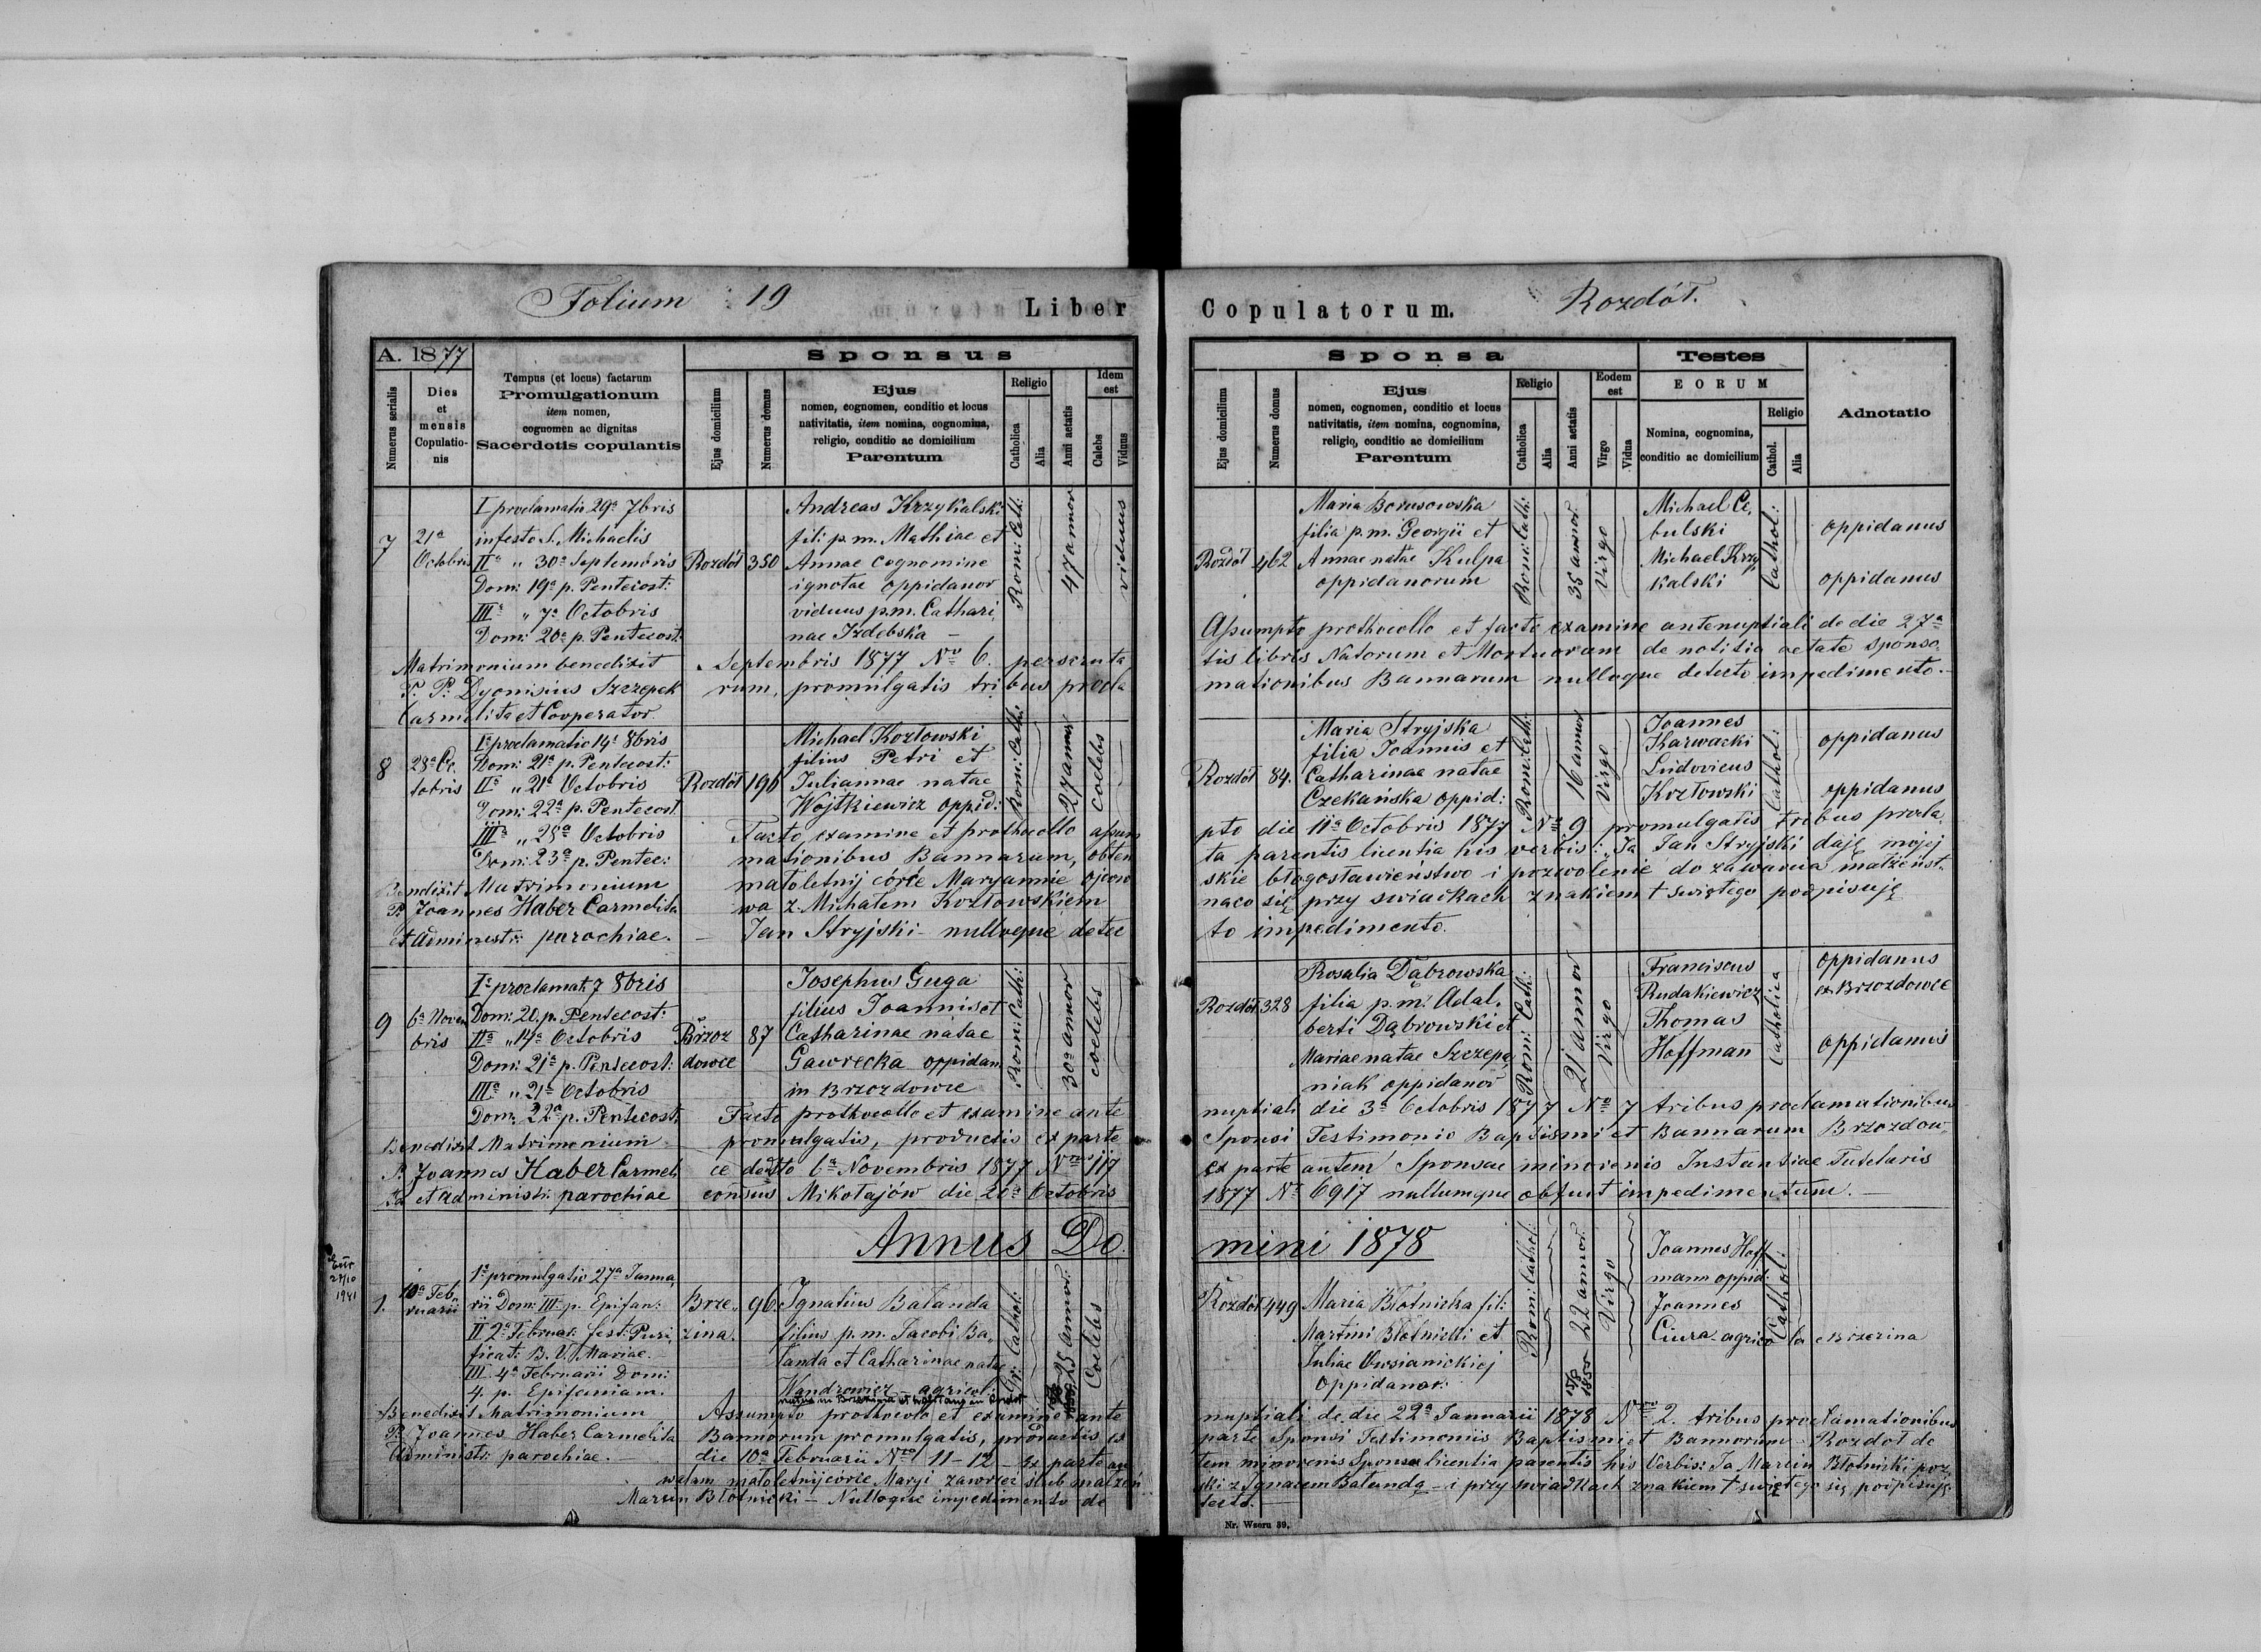 Folium 19
Liber Copulatorum.
Rozdół.
A. 1877
Numerus serialis
Dies et mensis Copulatio-nis
Tempus (et locus) factarum
Promulgationum
item nomen,
cognomen ac dignitas
Sacerdotis copulantis
Sponsus
Ejus domicilium
Numerus domus
Ejus
nomen, cognomen, conditio et locus
nativitatis, item nomina, cognomina,
religio, conditio ac domicilium
Parentum
Religio
Catholica
Alia
Anni aetatis
Idem est
Calebs
Viduus
Sponsa
Ejus domicilium
Numerus domus
Ejus
nomen, cognomen, conditio et locus
nativitatis, item nomina, cognomina,
religio, conditio ac domicilium
Parentum
Religio
Catholica
Alia
Anni aetatis
Eodem est
Virgo
Vidua
Testes
EORUM
Nomina, cognomina,
conditio ac domicilium
Religio
Cathol.
Alia
Adnotatio
7
21a
Octobris
I proclamatio 29a 7bris
in festo S. Michaelis
IIa " 30a Septembris
Dom: 19a p. Pentecost:
IIIa " 7a Octobris
Dom: 20a p. Pentecost:
Matrimonium benedixit
P. P. Dyonisius Szczepek
Carmelita et Cooperator
Rozdół
350
Andreas Krzykalski
fil: p. m. Mathiae et
Annae cognomine
ignotae oppidanor
viduus p.m. Cathari,
nae Izdebska –
Rom: Cath:
47 annor
viduus
Rozdół
462
Maria Borusowska
filia p. m. Georgii et
Annae natae Kulpa
oppidanorum
Rom: Cath:
35 annor
Virgo
Michael Ce,
bulski
Michael Krzy
kalski
Cathol:
oppidanus
oppidanus
Assumpto prothocollo et facto examine antenuptiali de die 27a
Septembris 1877 Nro 6. perscruta
tis libris Natorum et Mortuorum de notitia aetate sponso,
rum, promulgatis tribus procla
mationibus Bannarum nulloque detecto impedimento.–
8
28a Oc,
tobris
Ia proclamatio 14a 8bris
Dom: 21a p. Pentecost:
IIa " 21a Octobris
Dom: 22a p. Pentecost
IIIa " 28a Octobris
Dom: 23a p. Pentec:
Benedixit Matrimonium
P. Joannes Haber Carmelita
et Administr: parochiae.
Rozdół
196
Michael Kozłowski
filius Petri et
Juliannae natae
Wojtkiewicz oppid:
Rom: Cath:
27 annor
coelebs
Rozdół
84.
Maria Stryjska
filia Joannis et
Catharinae natae
Czekańska oppid:
Rom: Cath:
16 annor
Virgo
Joannes
Karwacki
Ludovicus
Kozłowski
Cathol:
oppidanus
oppidanus
Facto examine et prothocollo assum
pto die 11a Octobris 1877 Nro 9 promulgatis tribus procla,
mationibus Bannarum, obten
ta parentis licentia his verbis: "Ja Jan Stryjski daję mojej
małoletnij córce Maryannie ojcow
skie błogosławieństwo i pozwolenie do zawarcia małżeńst.
wa z Michałem Kozłowskiem
naco się przy swiadkach znakiem † swiętego podpisuję
– Jan Stryjski – nulloque detec
to impedimento.
9
6a Novem
bris
Ia proclamat. 7 8bris
Dom: 20. p. Pentecost:
IIa " 14a Octobris
Dom: 21a p. Pentecost:
IIIa " 21a Octobris
Dom: 22a p. Pentecost:
Benedixit Matrimonium
P. Joannes Haber Carmeli
ta et administr: parochiae
Brzoz
dowce
87
Josephus Guga
filius Joannis et
Catharinae natae
Gawrecka oppidan
in Brzozdowce
Rom: Cath:
30a annor
coelebs
Rozdół
328
Rosalia Dąbrowska
filia p. m. Adal,
berti Dąbrowski et
Mariae natae Szczepa,
niak oppidanor
Rom: Cath:
21 annor
Virgo
Franciscus
Rudakiewicz
Thomas
Hoffman
Catholica
oppidanus
ex Brzozdowce
oppidanus
Facto prothocollo et examine ante
nuptiali die 3a Octobris 1877 Nro 7 tribus proclamationibus
promulgatis, productis ex parte
Sponsi Testimonio Baptismi et Bannarum Brzozdow,
ce dedto 6a Novembris 1877 Nro 117
ex parte autem Sponsae minorenis Instantiae Tutelaris
consus Mikołajów die 20a Octobris
1877 No 6917 nullumque obfuit impedimentum.–
Annus Domini 1878
27/10
1941
1.
10a Feb,
ruarii
1a promulgatio 27a Janua,
rii Dom: III. p. Epifan:
II 2a Februar: fest: Puri,
ficat: B. V. Mariae.
III. 4a Februarii Dom:
4. p. Epifaniam.
Benedixit Matrimonium
P. Joannes Haber Carmelita
Administr: parochiae.–
Brze,
zina.
96
Ignatius Bałanda
filius p. m. Jacobi Ba,
łanda et Catharinae natae
Wandrowicz – agricol:
Gr: Cathol:
25 annor:
Coelebs
Rozdół
449
Maria Błotnicka fil:
Martini Błotnicki et
Juliae Owsianickiej
oppidanor:
Rom: Cathol:
22 annor.
1855
Virgo
Joannes Hoff
mann oppid:
Joannes
Ciura agrico
la e Brzezina
Cathol:
Assumpto prothocolo et examine ante
nuptiali de die 22a Januarii 1878 Nro 2. tribus proclamationibus
Bannorum promulgatis, productis ex
parte Sponsi Testimoniis Baptismi et Bannorum – Rozdoł de
die 10a Februarii Nro 11–12 – Ex parte au
tem minorenis Sponsae licentia parentis his Verbis: Ja Marcin Błotnicki poz,
walam małoletnij córce Maryi zawrzeć ślub małżeń
ski z Ignacem Bałandą – i przy swiadkach znakiem † swiętego się podpisuję.
Marcin Błotnicki – Nulloque impedimento de
tecto.–
Nr. Wzoru 39.